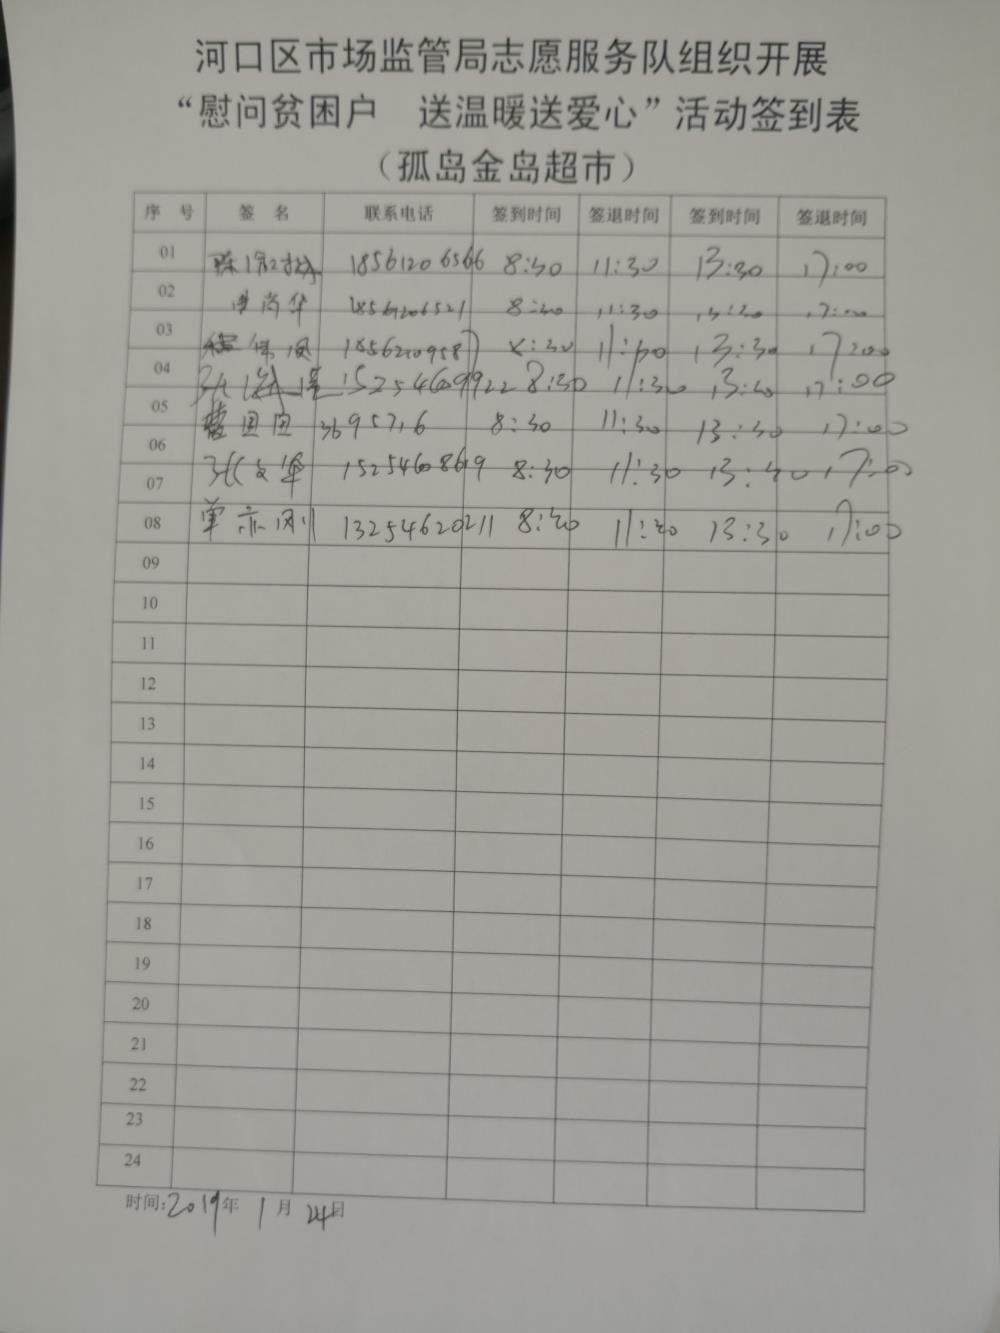 河口区市场监管局志愿服务队组织开展
“慰问贫困户 送温暖送爱心”活动签到表
（孤岛金岛超市）
序 号 签 名 联系电话 签到时间 签退时间 签到时间 签退时间
01 18561206566 8:30 11:30 13:30 17:00
02 18561206521 8:30 11:30 13:30 17:00
03 18562109587 8:30 11:30 13:30 17:00
04 15254609922 8:30 11:30 13:30 17:00
05 8:30 11:30 13:30 17:00
06 15254608619 8:30 11:30 13:30 17:00
07
08 13254620211 8:30 11:30 13:30 17:00
09
10
11
12
13
14
15
16
17
18
19
20
21
22
23
24
时间:2019年 1月 24日